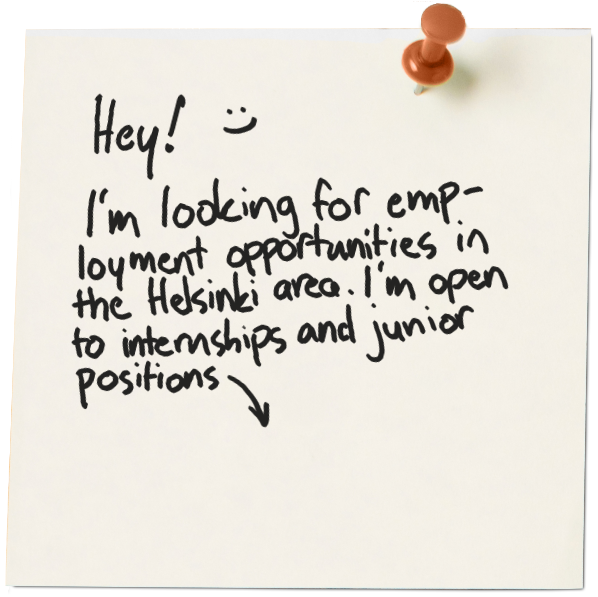 Hey! :)
I'm looking for emp-
loyment opportunities in
the Helsinki area. I'm open
to internships and junior
positions